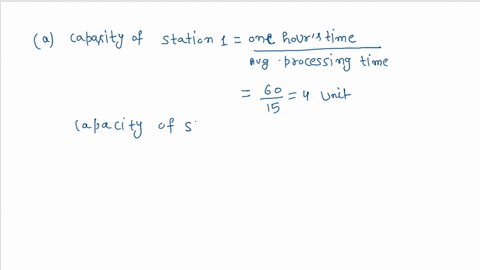 (a) capasity of station 1 = one hour's time
Avg. processing time
= 60
15
= 4 Unit
Capacity of s